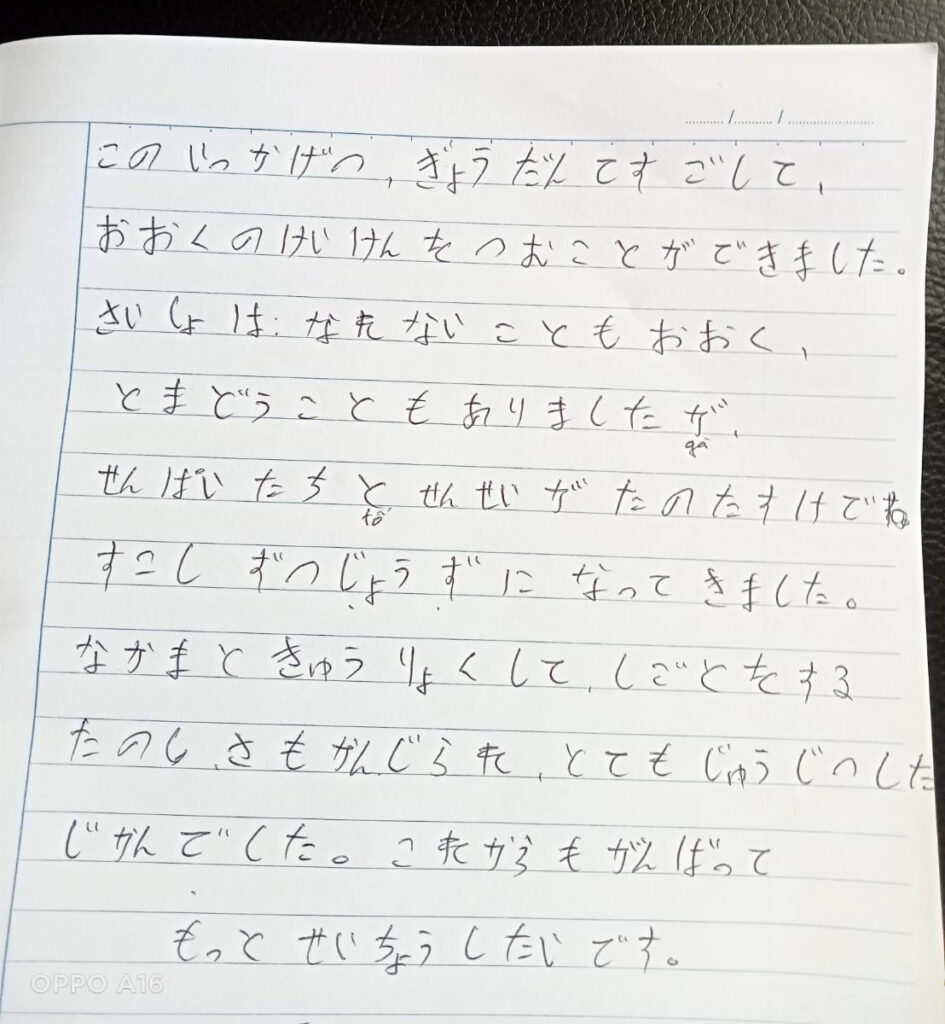 このいっかげつ、ぎょうだんてすごして、
おおくのけいけんをつむことができました。
さいしょは、なれないこともおおく、
とまどうこともありましたが、
ga
せんぱいたちとせんせいがたのたすけでね
to
すこしずつじょうずになってきました。
なかまときゅうりょくして、しごとをする
たのしさもかんじられ、とてもじゅうじつした
じかんでした。これからもがんばって
もっとせいちょうしたいです。
OPPO A16